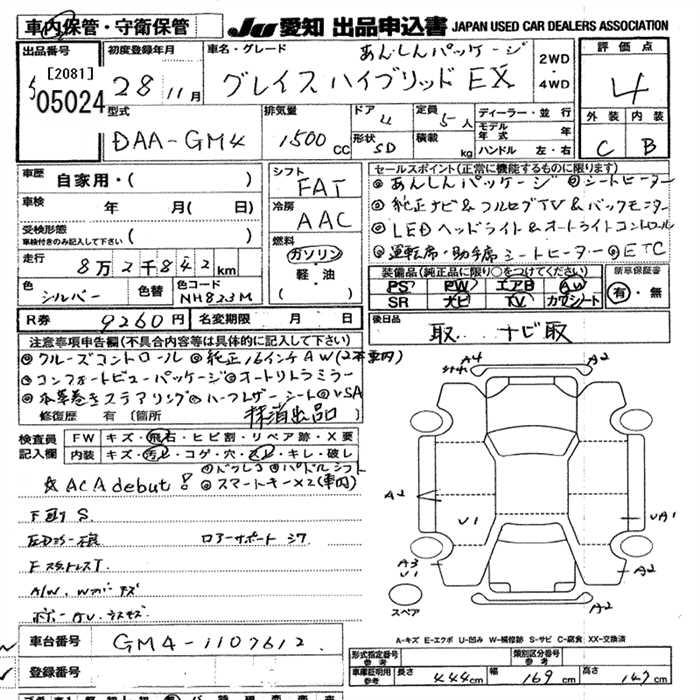 車内保管・守衛保管 JU 愛知 出品申込書 JAPAN USED CAR DEALERS ASSOCIATION
出品番号 初度登録年月 車名・グレード あんしんパッケージ 2WD・4WD 評価点
[2081]
05024 28年11月 グレイス ハイブリッド EX 4
型式 排気量 ドア 4 定員 5人 ディーラー・並行 外装 内装
DAA-GM4 1500cc 形状 SD 積載 kg モデル年式 年 C B
ハンドル 左・右
車歴 自家用・( ) シフト FAT セールスポイント(正常に機能するものに限ります)
車検 年 月( 日) 冷房 AAC ◎あんしんパッケージ ◎シートヒーター
受検形態 車検付きのみ記入して下さい ( ) ◎純正ナビ&フルセグTV&バックモニター
走行 8万2千842km 燃料 ガソリン 軽・油 ( ) ◎LEDヘッドライト&オートライトコントロール
◎運転席・助手席シートヒーター ◎ETC
色 シルバー 色替 色コード NH823M 装備品(純正品に限り○をつけてください) 新車保証書
PS PW エアB AW 有・無
SR ナビ TV カワシート
R券 9260円 名変期限 月 日 後日品 取 ナビ取
注意事項申告欄(不具合等は具体的に記入して下さい)
◎クルーズコントロール ◎純正16インチAW(2本車内)
◎コンフォートビューパッケージ ◎オートリトラミラー
◎本革巻きステアリング ◎ハーフレザーシート ◎VSA
修復歴 有 〔箇所 抹消出品 〕
検査員記入欄 FW キズ・飛石・ヒビ割・リペア跡・X要
内装 キズ・汚レ・コゲ・穴・スレ・キレ・破レ
◎ドラレコ ◎パドルシフト
☆ACA debut! ◎スマートキー×2(車内)
ロアーサポート
A4
A2
A2
V1
VA1
A3
V1
A2
A2
スペア
A-キズ E-エクボ U-凹み W-補修跡 S-サビ C-腐食 XX-交換済
車台番号 GM4-1107612 形式指定番号 参考 類別区分番号 参考
登録番号 車庫証明用 参考 長さ 444cm 幅 169cm 高さ 147cm